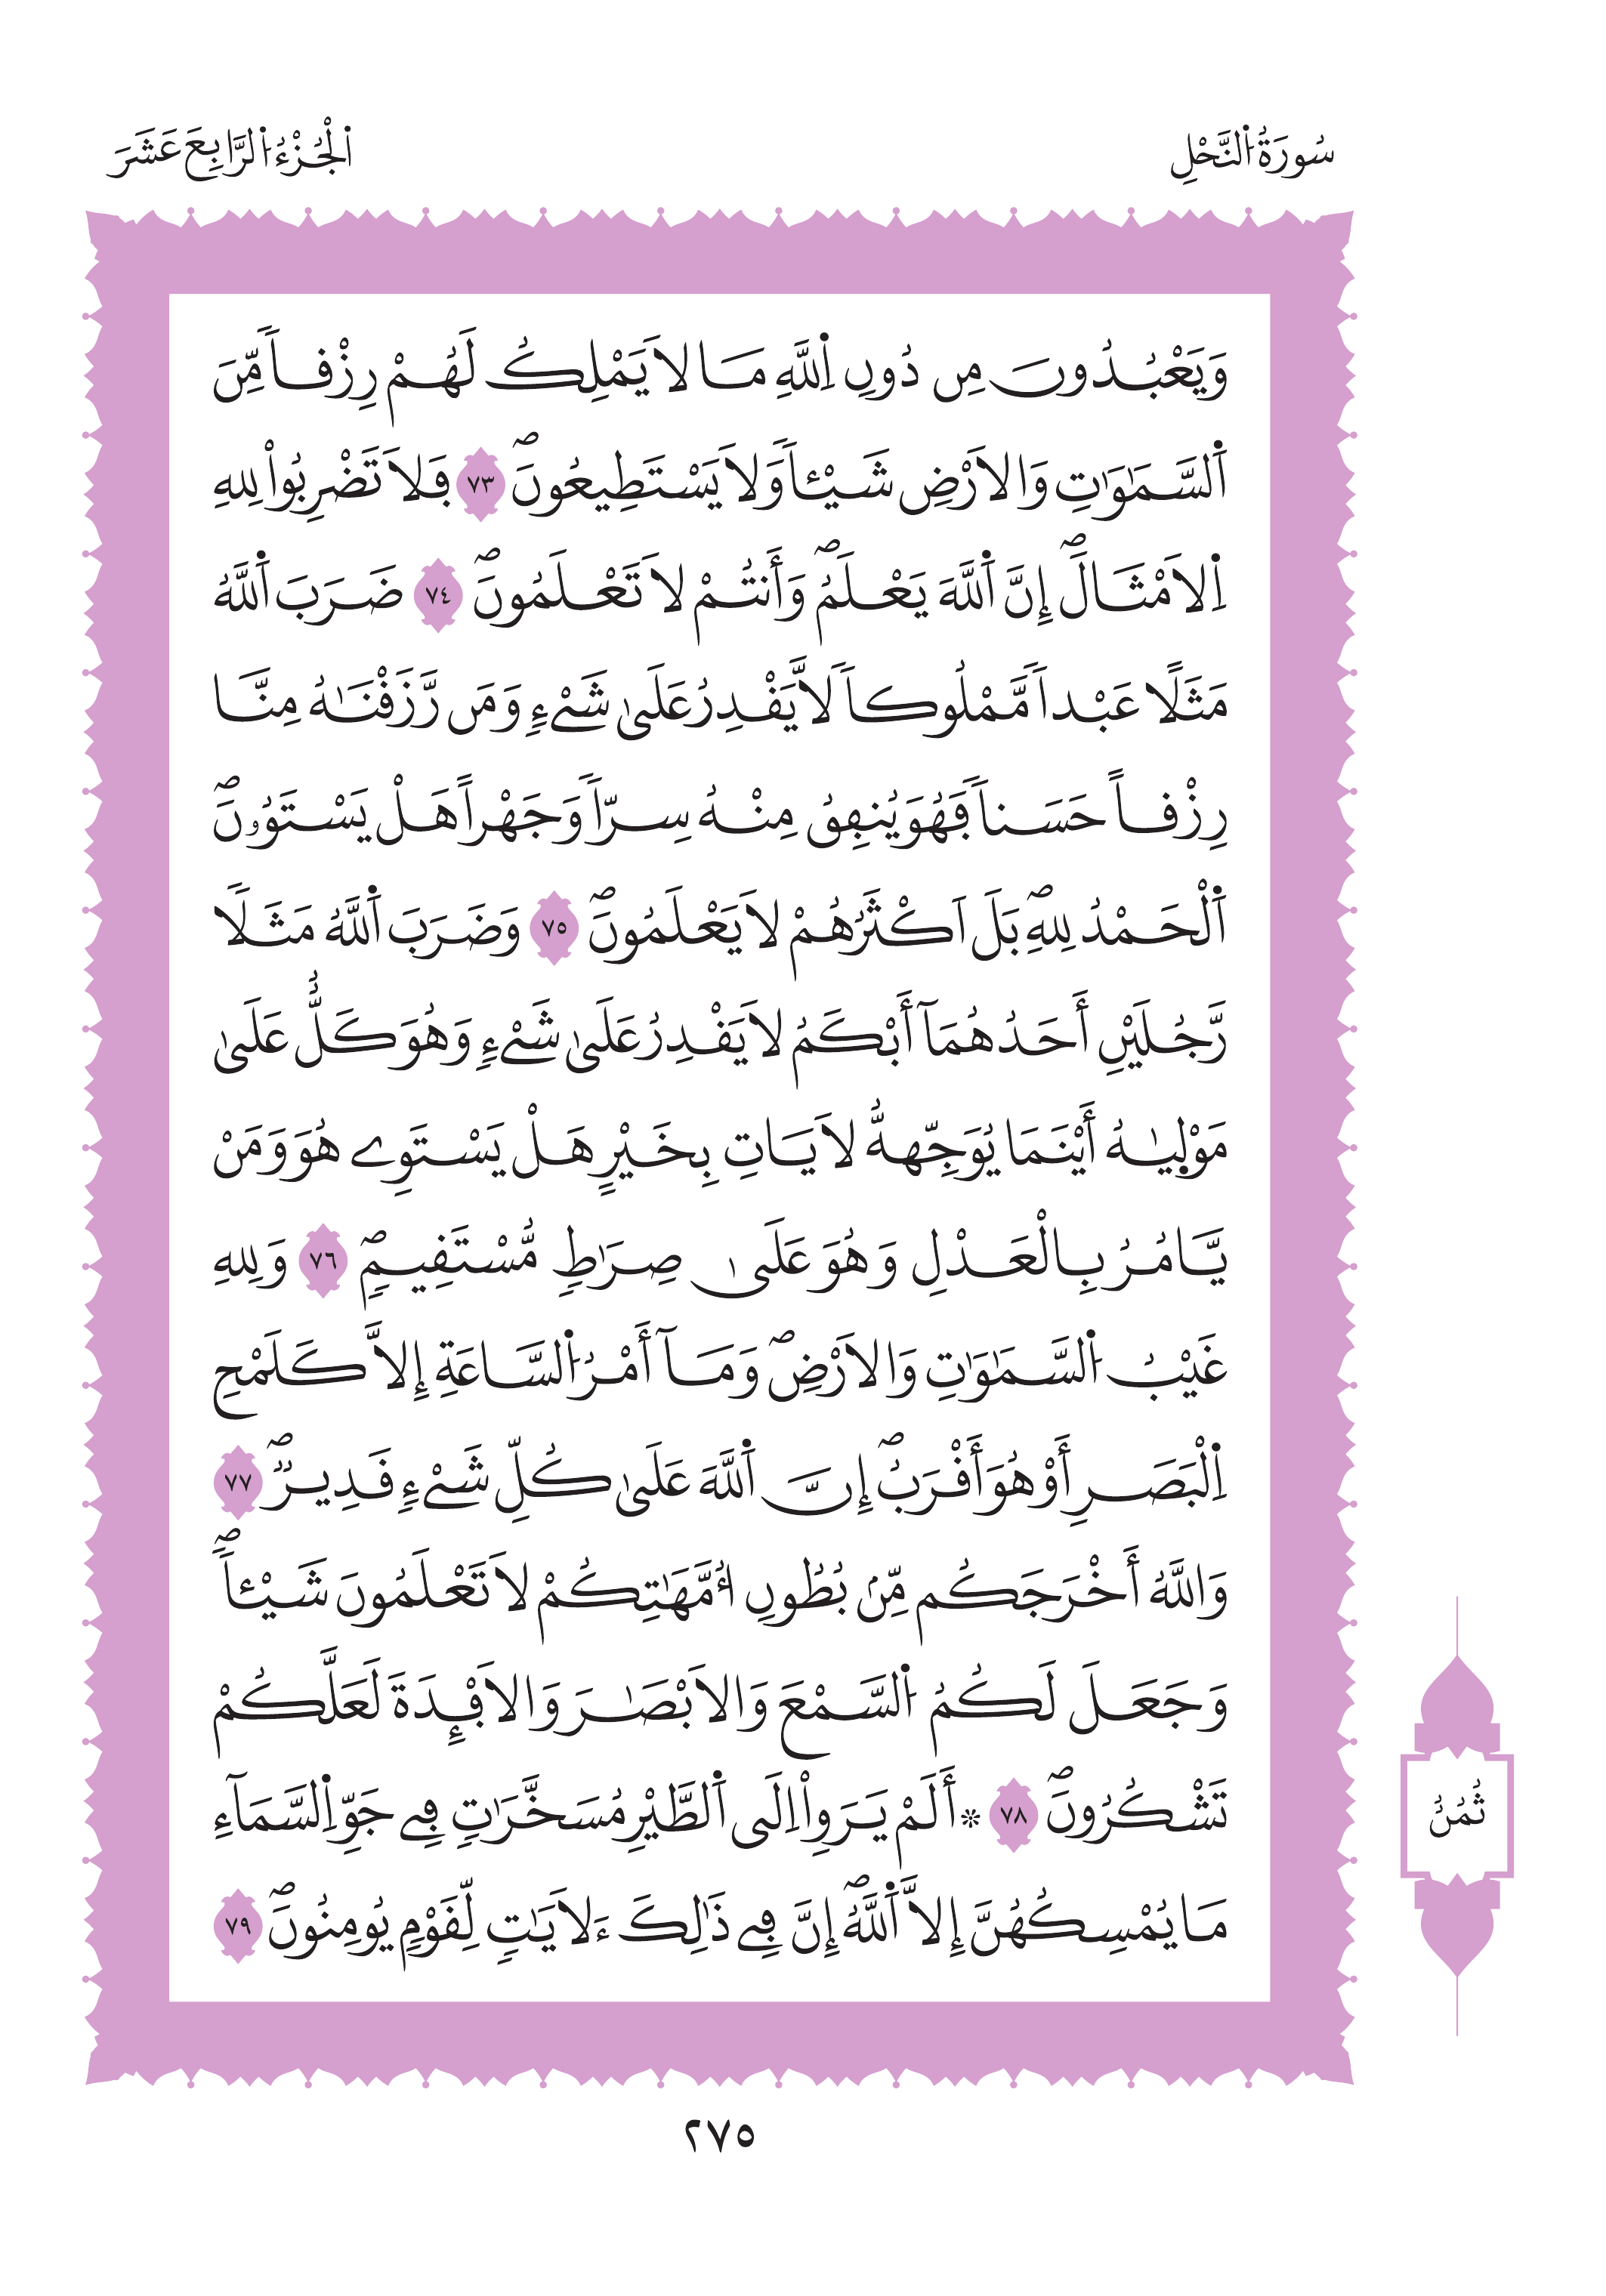 سُورَةُ اُ۬لنَّحْلِ
اَ۬لْجُزْءُ اُ۬لرَّابِعَ عَشَرَ
وَيَعْبُدُونَ مِن دُونِ اِ۬للَّهِ مَا لَا يَمْلِكُ لَهُمْ رِزْقاٗ مِّنَ
اَ۬لسَّمَٰوَٰتِ وَالَارْضِ شَيْـٔاٗ وَلَا يَسْتَطِيعُونَۖ ٧٣ فَلَا تَضْرِبُواْ لِلهِ
اِ۬لَامْثَالَۖ إِنَّ اَ۬للَّهَ يَعْلَمُۖ وَأَنتُمْ لَا تَعْلَمُونَۖ ٧٤ ضَرَبَ اَ۬للَّهُ
مَثَلًا عَبْداٗ مَّمْلُوكاٗ لَّا يَقْدِرُ عَلَىٰ شَےْءٖ وَمَن رَّزَقْنَٰهُ مِنَّا
رِزْقاً حَسَناٗ فَهُوَ يُنفِقُ مِنْهُ سِرّاٗ وَجَهْراً هَلْ يَسْتَوُۥنَۖ
اَ۬لْحَمْدُ لِلهِۖ بَلَ اَكْثَرُهُمْ لَا يَعْلَمُونَۖ ٧٥ وَضَرَبَ اَ۬للَّهُ مَثَلٗا
رَّجُلَيْنِ أَحَدُهُمَآ أَبْكَمُ لَا يَقْدِرُ عَلَىٰ شَےْءٖ وَهُوَ كَلٌّ عَلَىٰ
مَوْل۪يٰهُ أَيْنَمَا يُوَجِّههُّ لَا يَاتِ بِخَيْرٍ هَلْ يَسْتَوِے هُوَ وَمَنْ
يَّامُرُ بِالْعَدْلِ وَهُوَ عَلَىٰ صِرَٰطٖ مُّسْتَقِيمٖۖ ٧٦ وَلِلهِ
غَيْبُ اُ۬لسَّمَٰوَٰتِ وَالَارْضِۖ وَمَآ أَمْرُ اُ۬لسَّاعَةِ إِلَّا كَلَمْحِ
اِ۬لْبَصَرِ أَوْ هُوَ أَقْرَبُۖ إِنَّ اَ۬للَّهَ عَلَىٰ كُلِّ شَےْءٖ قَدِيرٞۖ ٧٧
وَاللَّهُ أَخْرَجَكُم مِّنۢ بُطُونِ أُمَّهَٰتِكُمْ لَا تَعْلَمُونَ شَيْـٔاٗۖ
وَجَعَلَ لَكُمُ اُ۬لسَّمْعَ وَالَابْصَٰرَ وَالَافْـِٕدَةَ لَعَلَّكُمْ
تَشْكُرُونَۖ ٧٨ ۞ أَلَمْ يَرَوِاْ اِلَى اَ۬لطَّيْرِ مُسَخَّرَٰتٖ فِے جَوِّ اِ۬لسَّمَآءِ
مَا يُمْسِكُهُنَّ إِلَّا اَ۬للَّهُۖ إِنَّ فِے ذَٰلِكَ ءَلَايَٰتٖ لِّقَوْمٖ يُومِنُونَۖ ٧٩
ثُمُنُ
٢٧٥